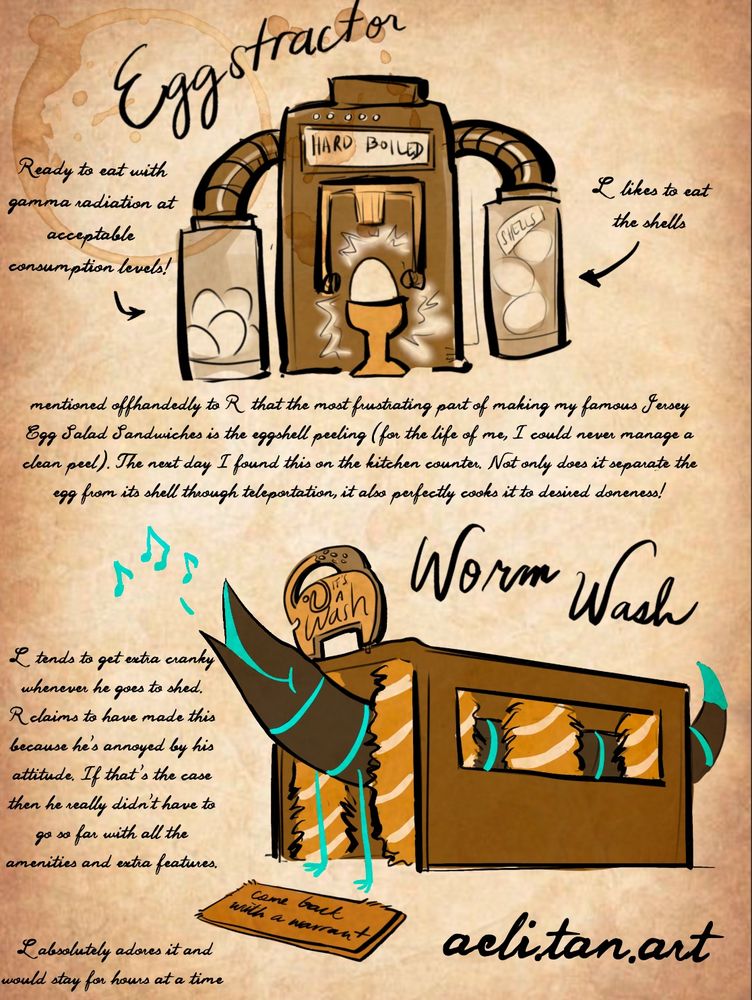 Eggstractor
Ready to eat with
gamma radiation at
acceptable
consumption levels!
HARD BOILED
SHELLS
L likes to eat
the shells
mentioned offhandedly to R that the most frustrating part of making my famous Jersey
Egg Salad Sandwiches is the eggshell peeling (for the life of me, I could never manage a
clean peel). The next day I found this on the kitchen counter. Not only does it separate the
egg from its shell through teleportation, it also perfectly cooks it to desired doneness!
Worm Wash
IT'S
A
Wash
L tends to get extra cranky
whenever he goes to shed.
R claims to have made this
because he's annoyed by his
attitude. If that's the case
then he really didn't have to
go so far with all the
amenities and extra features.
come back
with a warrant
L absolutely adores it and
would stay for hours at a time
aeli.tan.art